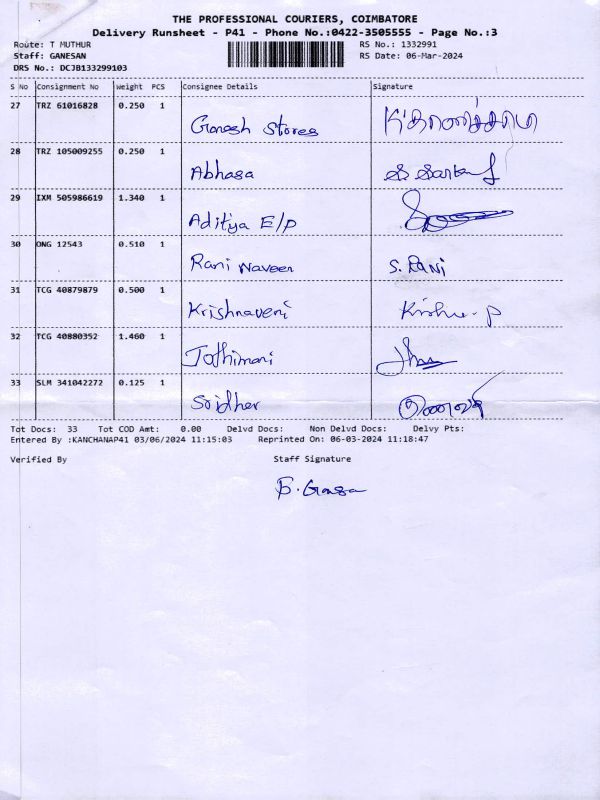 THE PROFESSIONAL COURIERS, COIMBATORE
Delivery Runsheet - P41 - Phone No.:0422-3505555 - Page No.:3
Route: T MUTHUR RS No.: 1332991
Staff: GANESAN RS Date: 06-Mar-2024
DRS No.: DCJB133299103
S No Consignment No Weight PCS Consignee Details Signature
27 TRZ 61016828 0.250 1
Ganesh Stores
28 TRZ 105009255 0.250 1
Abhasa
29 IXM 505986619 1.340 1
Aditya E/P
30 ONG 12543 0.510 1
Rani Naveen S. Rani
31 TCG 40879879 0.500 1
Krishnaveni
32 TCG 40880352 1.460 1
Jothimani
33 SLM 341042272 0.125 1
Sridher
Tot Docs: 33 Tot COD Amt: 0.00 Delvd Docs: Non Delvd Docs: Delvy Pts:
Entered By :KANCHANAP41 03/06/2024 11:15:03 Reprinted On: 06-03-2024 11:18:47
Verified By Staff Signature